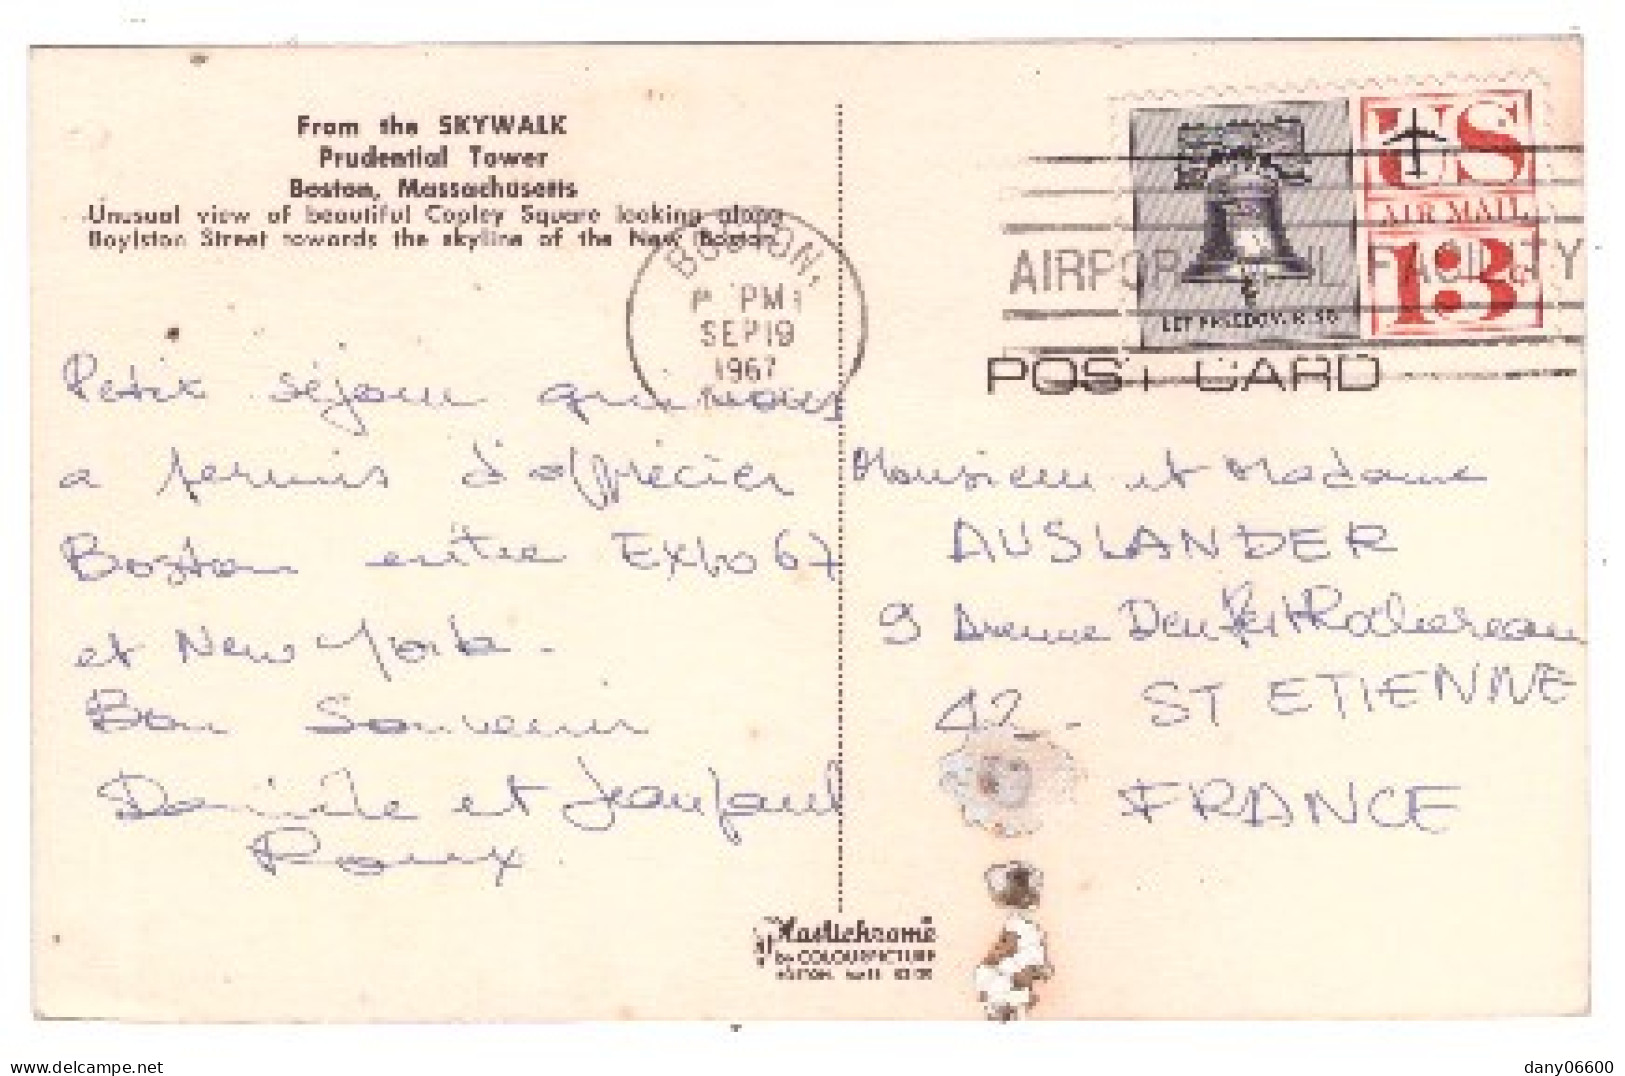 From the SKYWALK
Prudential Tower
Boston, Massachusetts
Unusual view of beautiful Copley Square looking along
Boylston Street towards the skyline of the New Boston.
BOSTON,
PM
SEP 19
1967
US
AIR MAIL
13c
LET FREEDOM RING
AIRPORT MAIL FACILITY
POST CARD
Petit séjour qui nous
a permis d'apprécier
Boston entre Expo 67
et New York.
Bon Souvenir
Danièle et Jean Paul
Roux.
Monsieur et Madame
AUSLANDER
9 Avenue Denfert Rochereau
42 - ST ETIENNE
FRANCE
Plastichrome
by COLOURPICTURE
BOSTON, MASS.
delcampe.net
dany06600